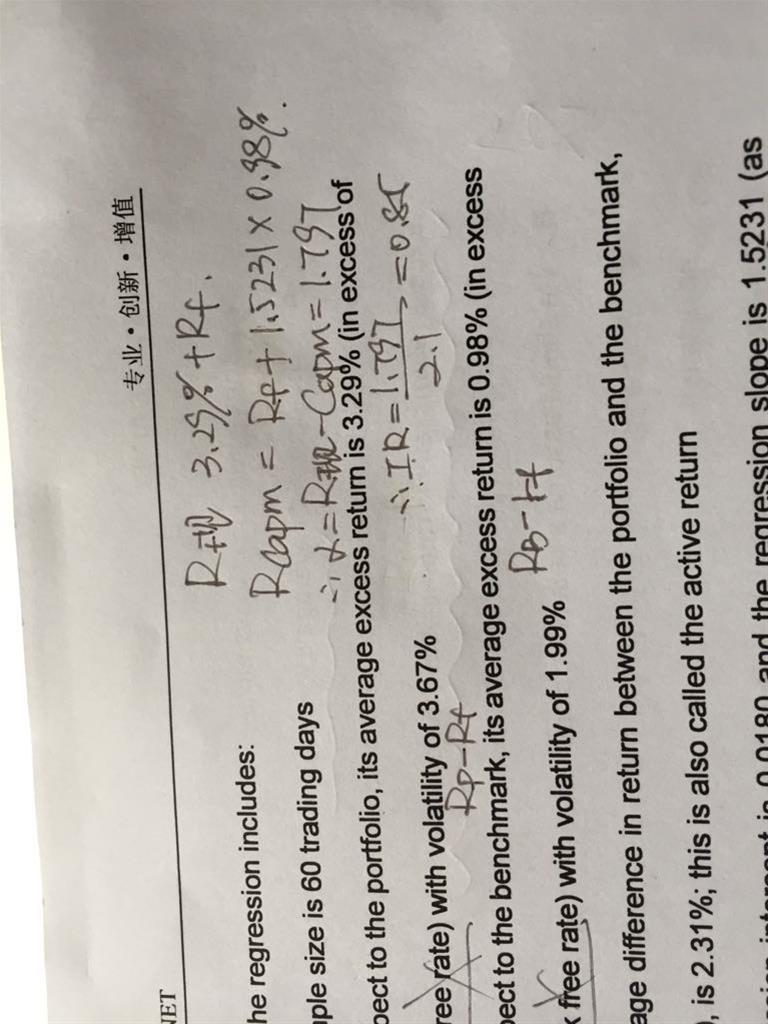 NET
专业·创新·增值
R现 3.29% + Rf.
Rcapm = Rf + 1.5231 × 0.98%.
he regression includes:
∴ α = R现 - Capm = 1.797
ple size is 60 trading days
pect to the portfolio, its average excess return is 3.29% (in excess of
∴ IR = 1.797 / 2.1 = 0.85
ree rate) with volatility of 3.67%
Rp-Rf
pect to the benchmark, its average excess return is 0.98% (in excess
RB-rf
k free rate) with volatility of 1.99%
age difference in return between the portfolio and the benchmark,
), is 2.31%; this is also called the active return
intercept is 0.0180 and the regression slope is 1.5231 (as